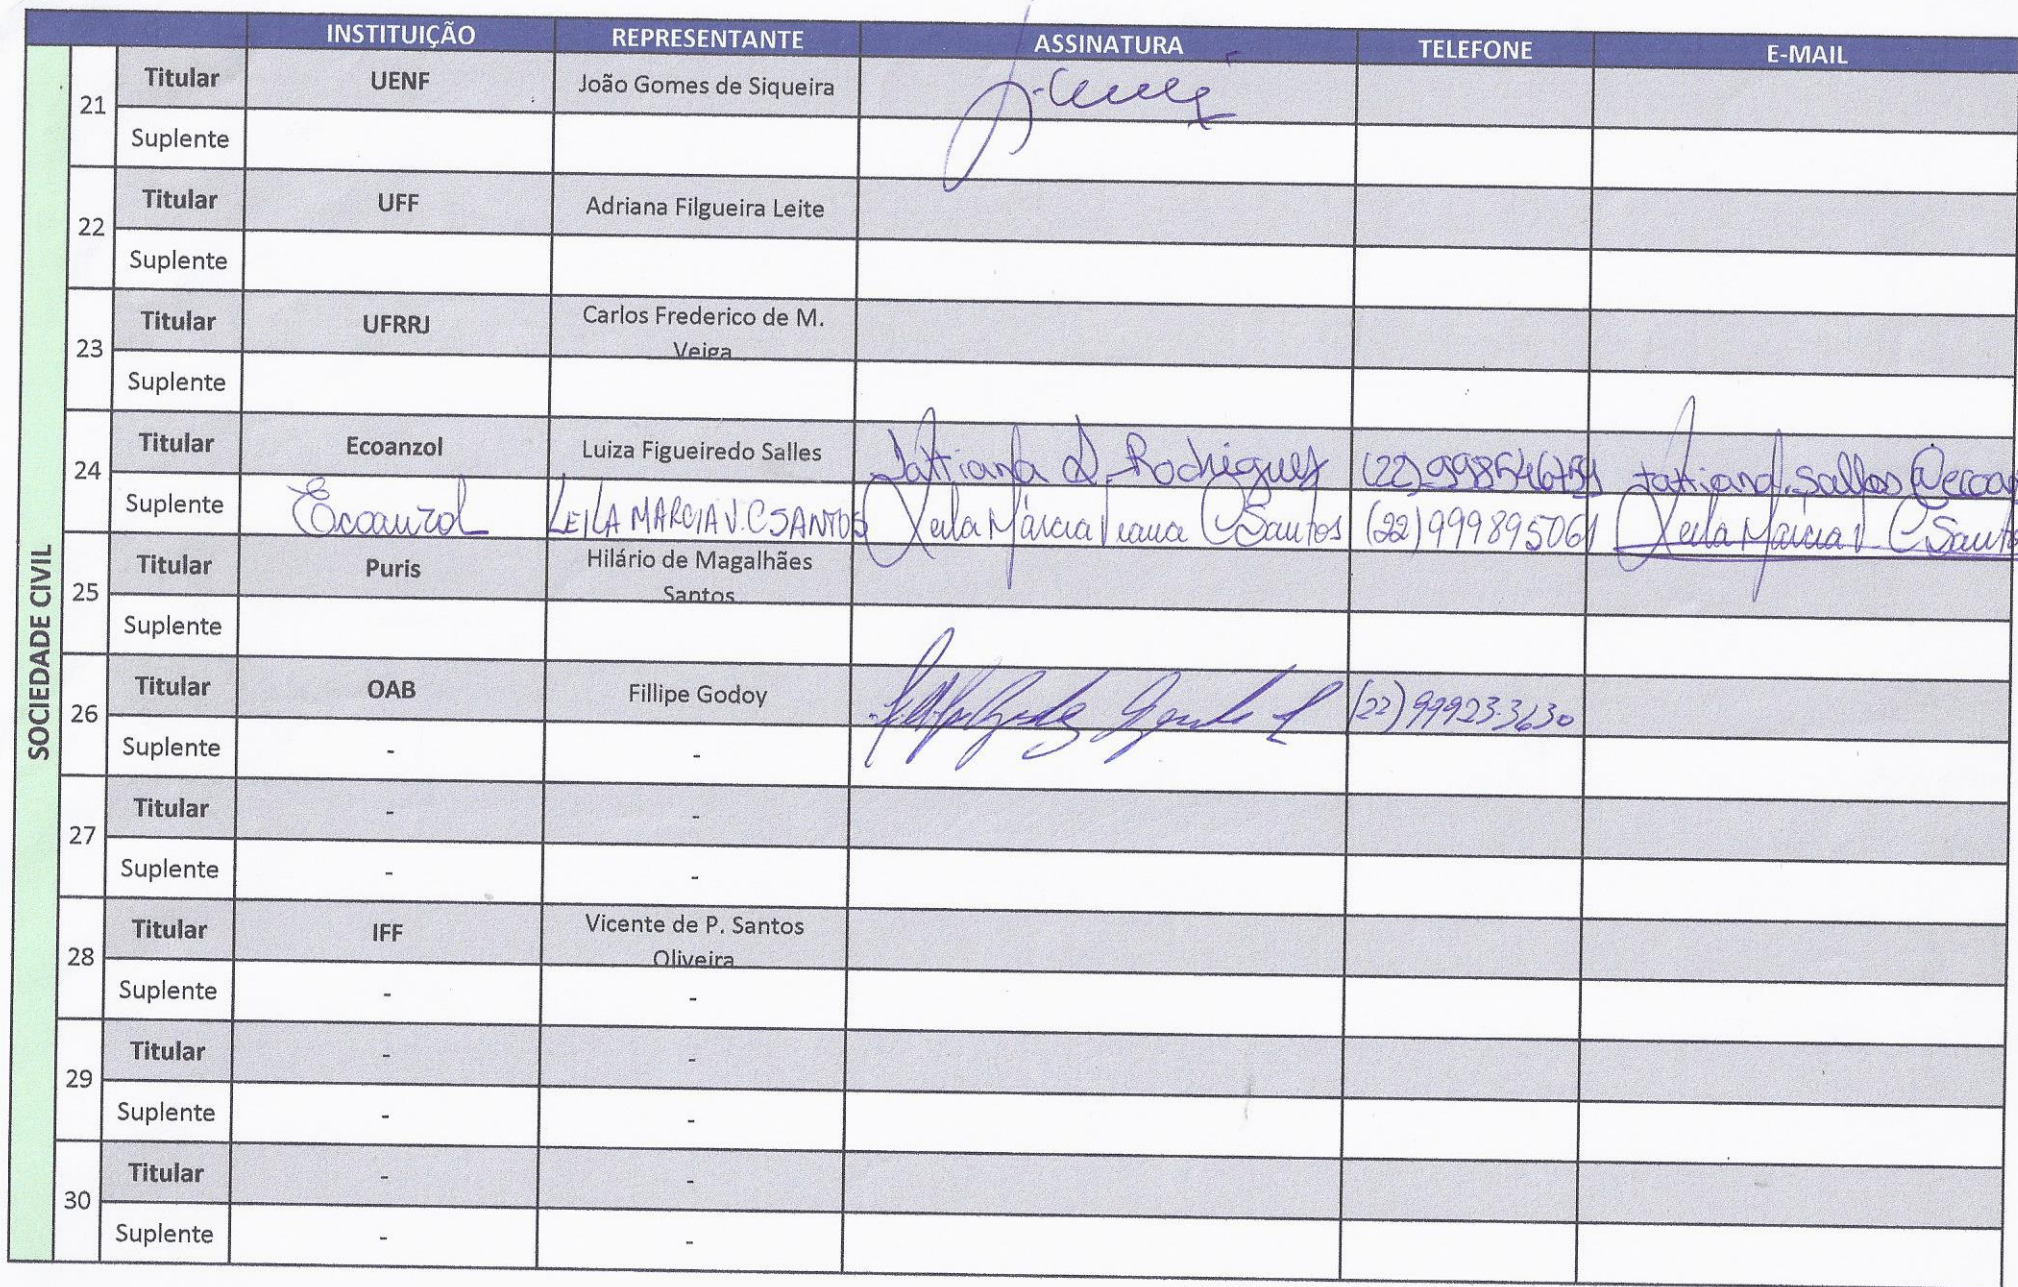 INSTITUIÇÃO REPRESENTANTE ASSINATURA TELEFONE E-MAIL
SOCIEDADE CIVIL
21 Titular UENF João Gomes de Siqueira
Suplente
22 Titular UFF Adriana Filgueira Leite
Suplente
23 Titular UFRRJ Carlos Frederico de M.
Veiga
Suplente
24 Titular Ecoanzol Luiza Figueiredo Salles Tatiana S. Rodrigues (22) 998546751
Suplente Ecoanzol LEILA MARCIA V. C SANTOS Leila Márcia Viana C Santos (22) 999895061 Leila Márcia V C Santos
25 Titular Puris Hilário de Magalhães
Santos
Suplente
26 Titular OAB Fillipe Godoy (22) 999233630
Suplente - -
27 Titular - -
Suplente - -
28 Titular IFF Vicente de P. Santos
Oliveira
Suplente - -
29 Titular - -
Suplente - -
30 Titular - -
Suplente - -